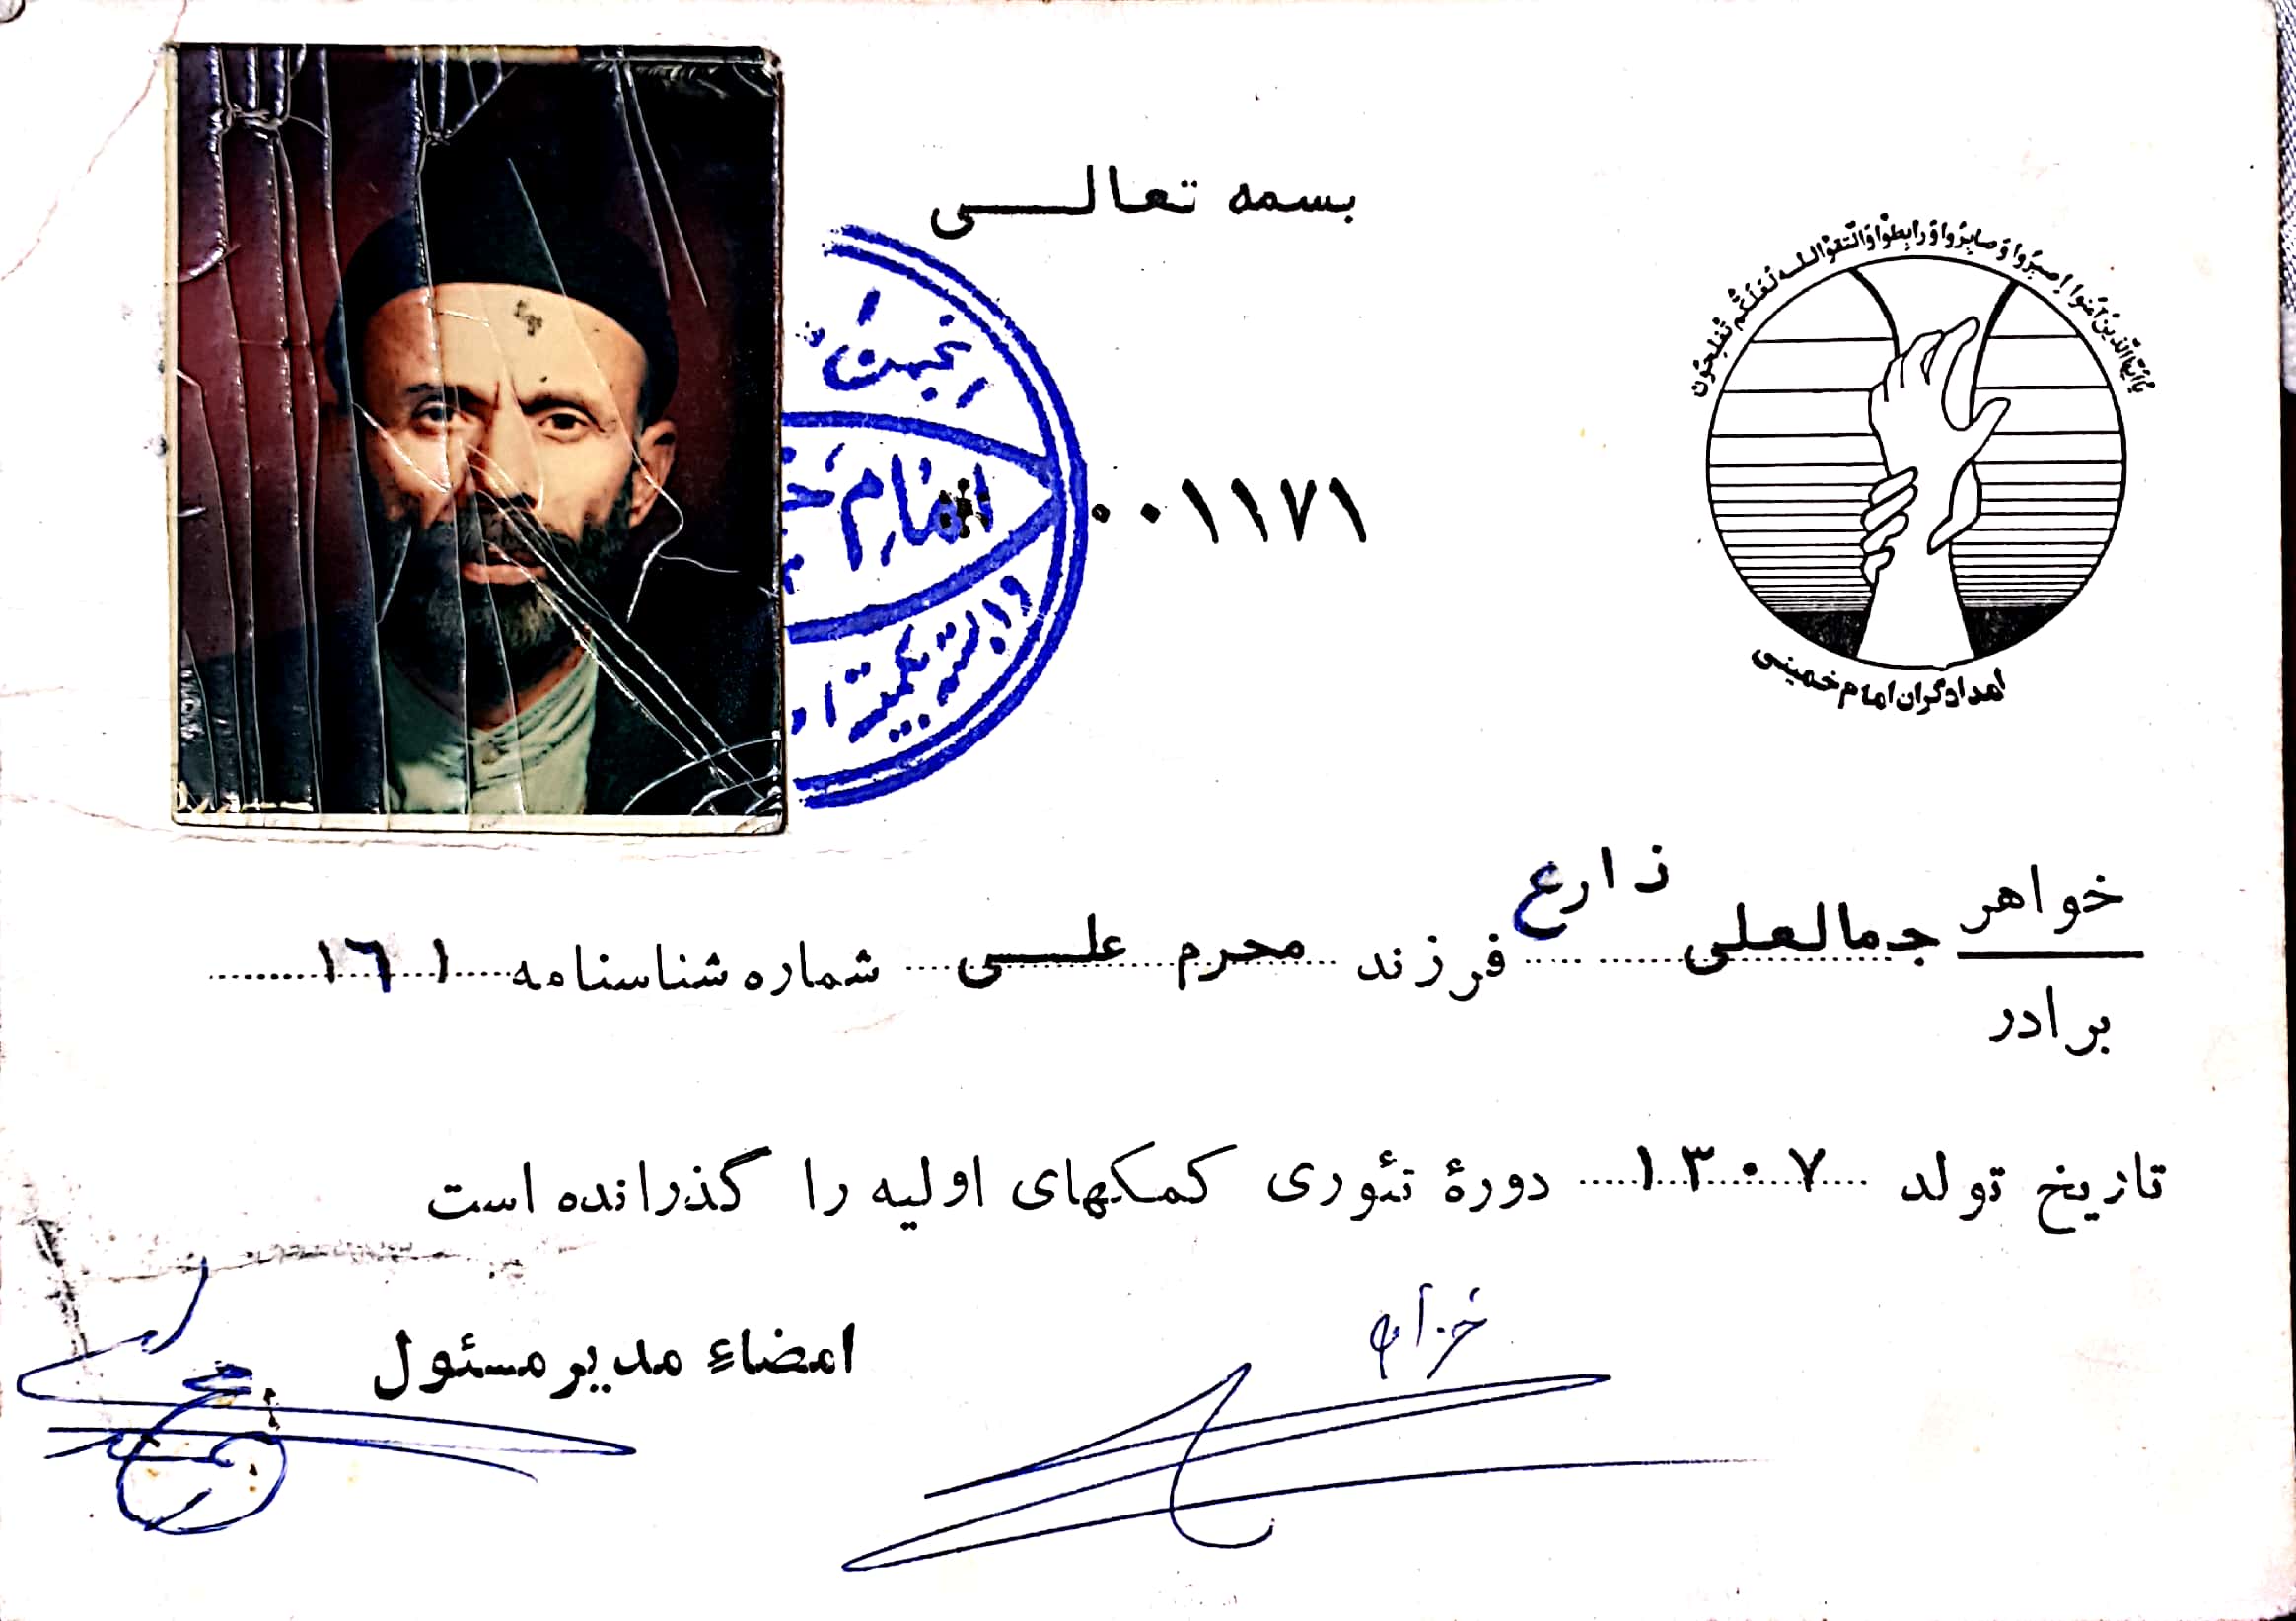 بسمه تعالی
یا ایها الذین آمنوا اصبروا و صابروا و رابطوا و اتقوا الله لعلکم تفلحون
امدادگران امام خمینی
انجمن
امام
وابسته بکمیته
۰۰۱۱۷۱
خواهر
برادر
جمالعلی ذارع فرزند محرم علی شماره شناسنامه ۱۶۱
تاریخ تولد ۱۳۰۷ دورهٔ تئوری کمکهای اولیه را گذرانده است
امضاء مدیر مسئول